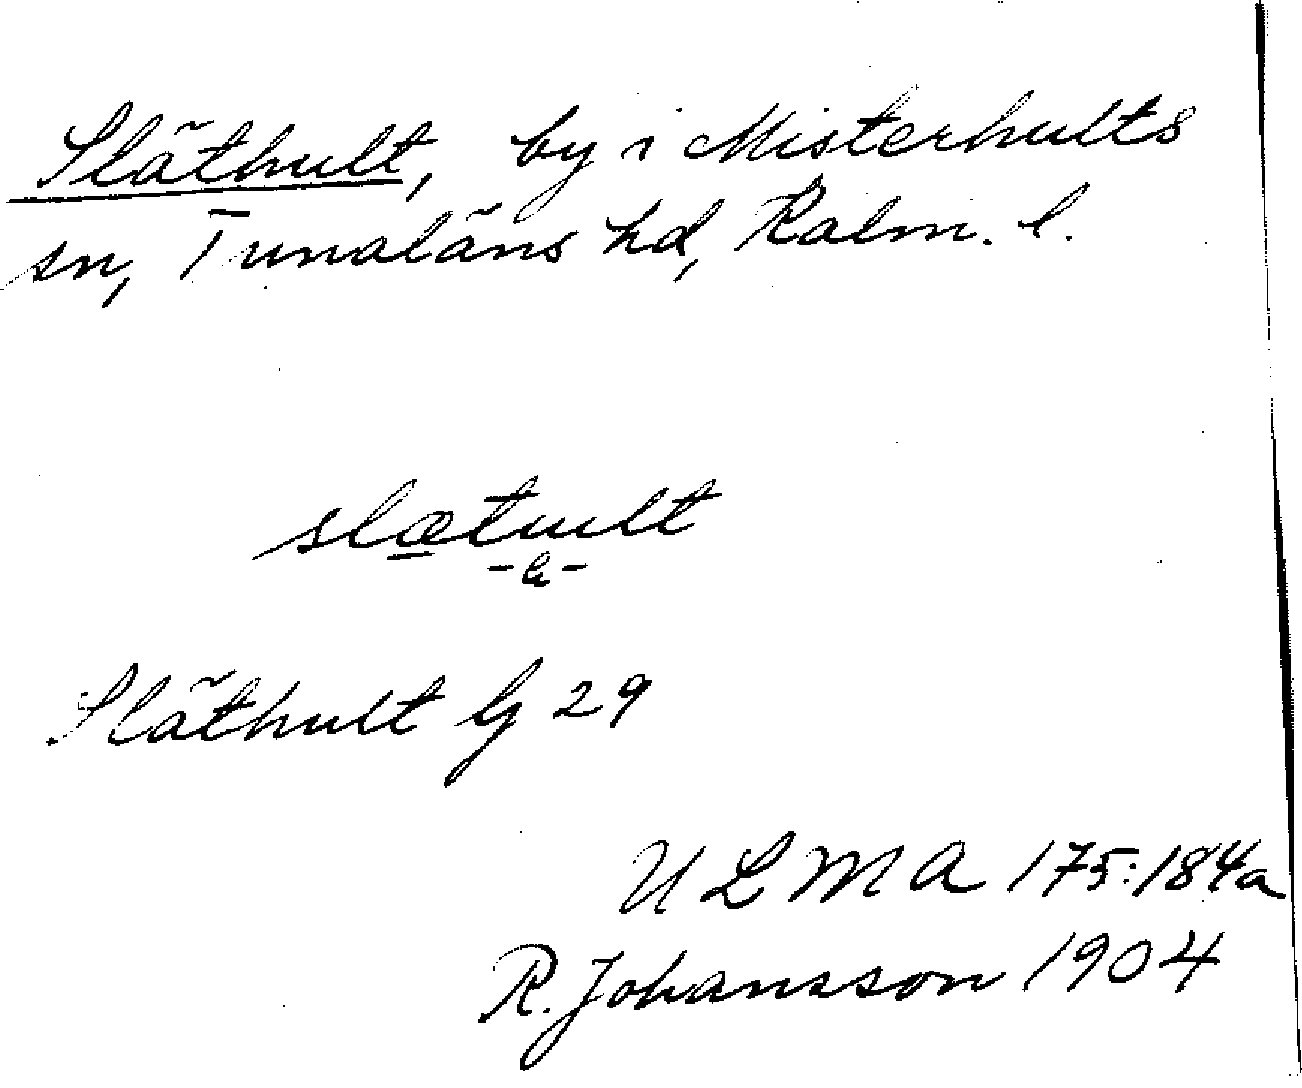 Släthult, by i Misterhults
sn, Tunaläns hd, Kalm. l.
slætult
Släthult G 29
ULMA 175:184a
R. Johansson 1904